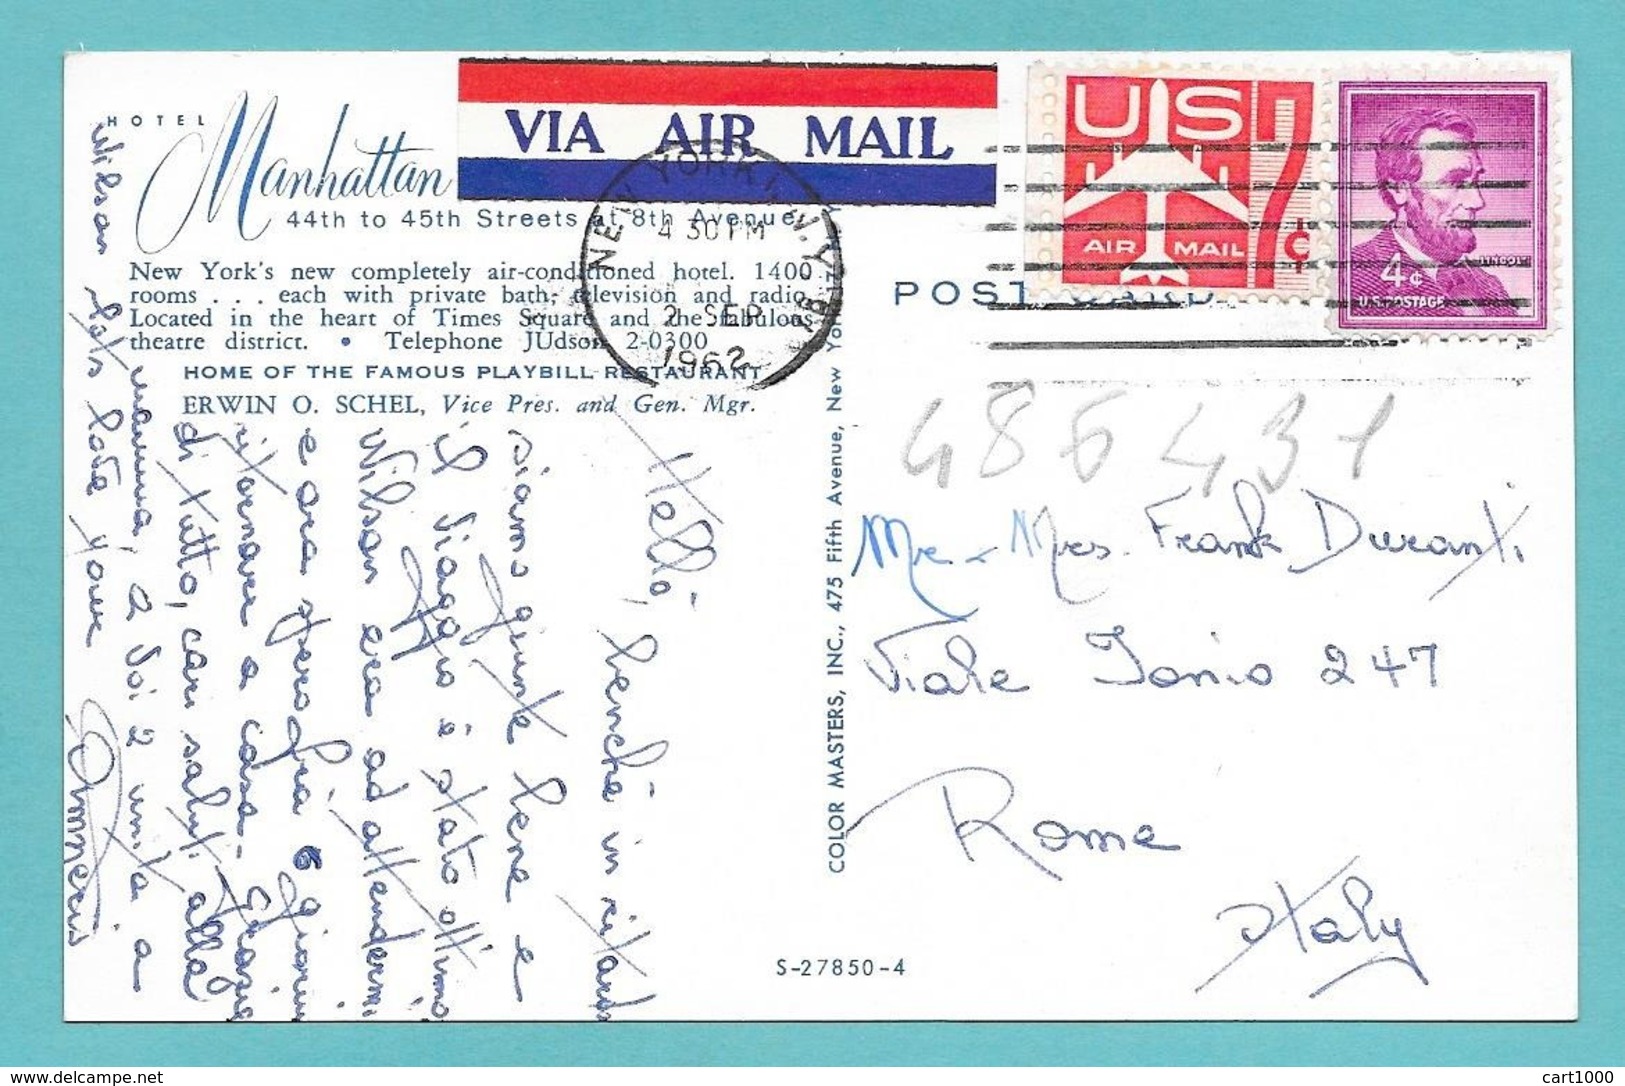 HOTEL
Manhattan
44th to 45th Streets at 8th Avenue
New York's new completely air-conditioned hotel. 1400
rooms . . . each with private bath, television and radio.
Located in the heart of Times Square and the fabulous
theatre district. • Telephone JUdson 2-0300
HOME OF THE FAMOUS PLAYBILL RESTAURANT
ERWIN O. SCHEL, Vice Pres. and Gen. Mgr.
VIA AIR MAIL
NEW YORK, N.Y.
4 30 PM
2 SEP
1962
US 7¢
AIR MAIL
4¢
LINCOLN
U.S. POSTAGE
POST CARD
COLOR MASTERS, INC., 475 Fifth Avenue, New York
S-27850-4
486431
Mr & Mrs. Frank Duranti
Viale Jonio 247
Rome
Italy
Hello, benché in ritardo
siamo giunte bene e
il viaggio è stato ottimo
Wilson era ad attendermi
e ora spero fra 6 giorni
ritornare a casa. Grazie
di tutto, cari saluti alla
mamma, a voi 2 unita a
Wilson lots love your
Amneris
cart1000
www.delcampe.net